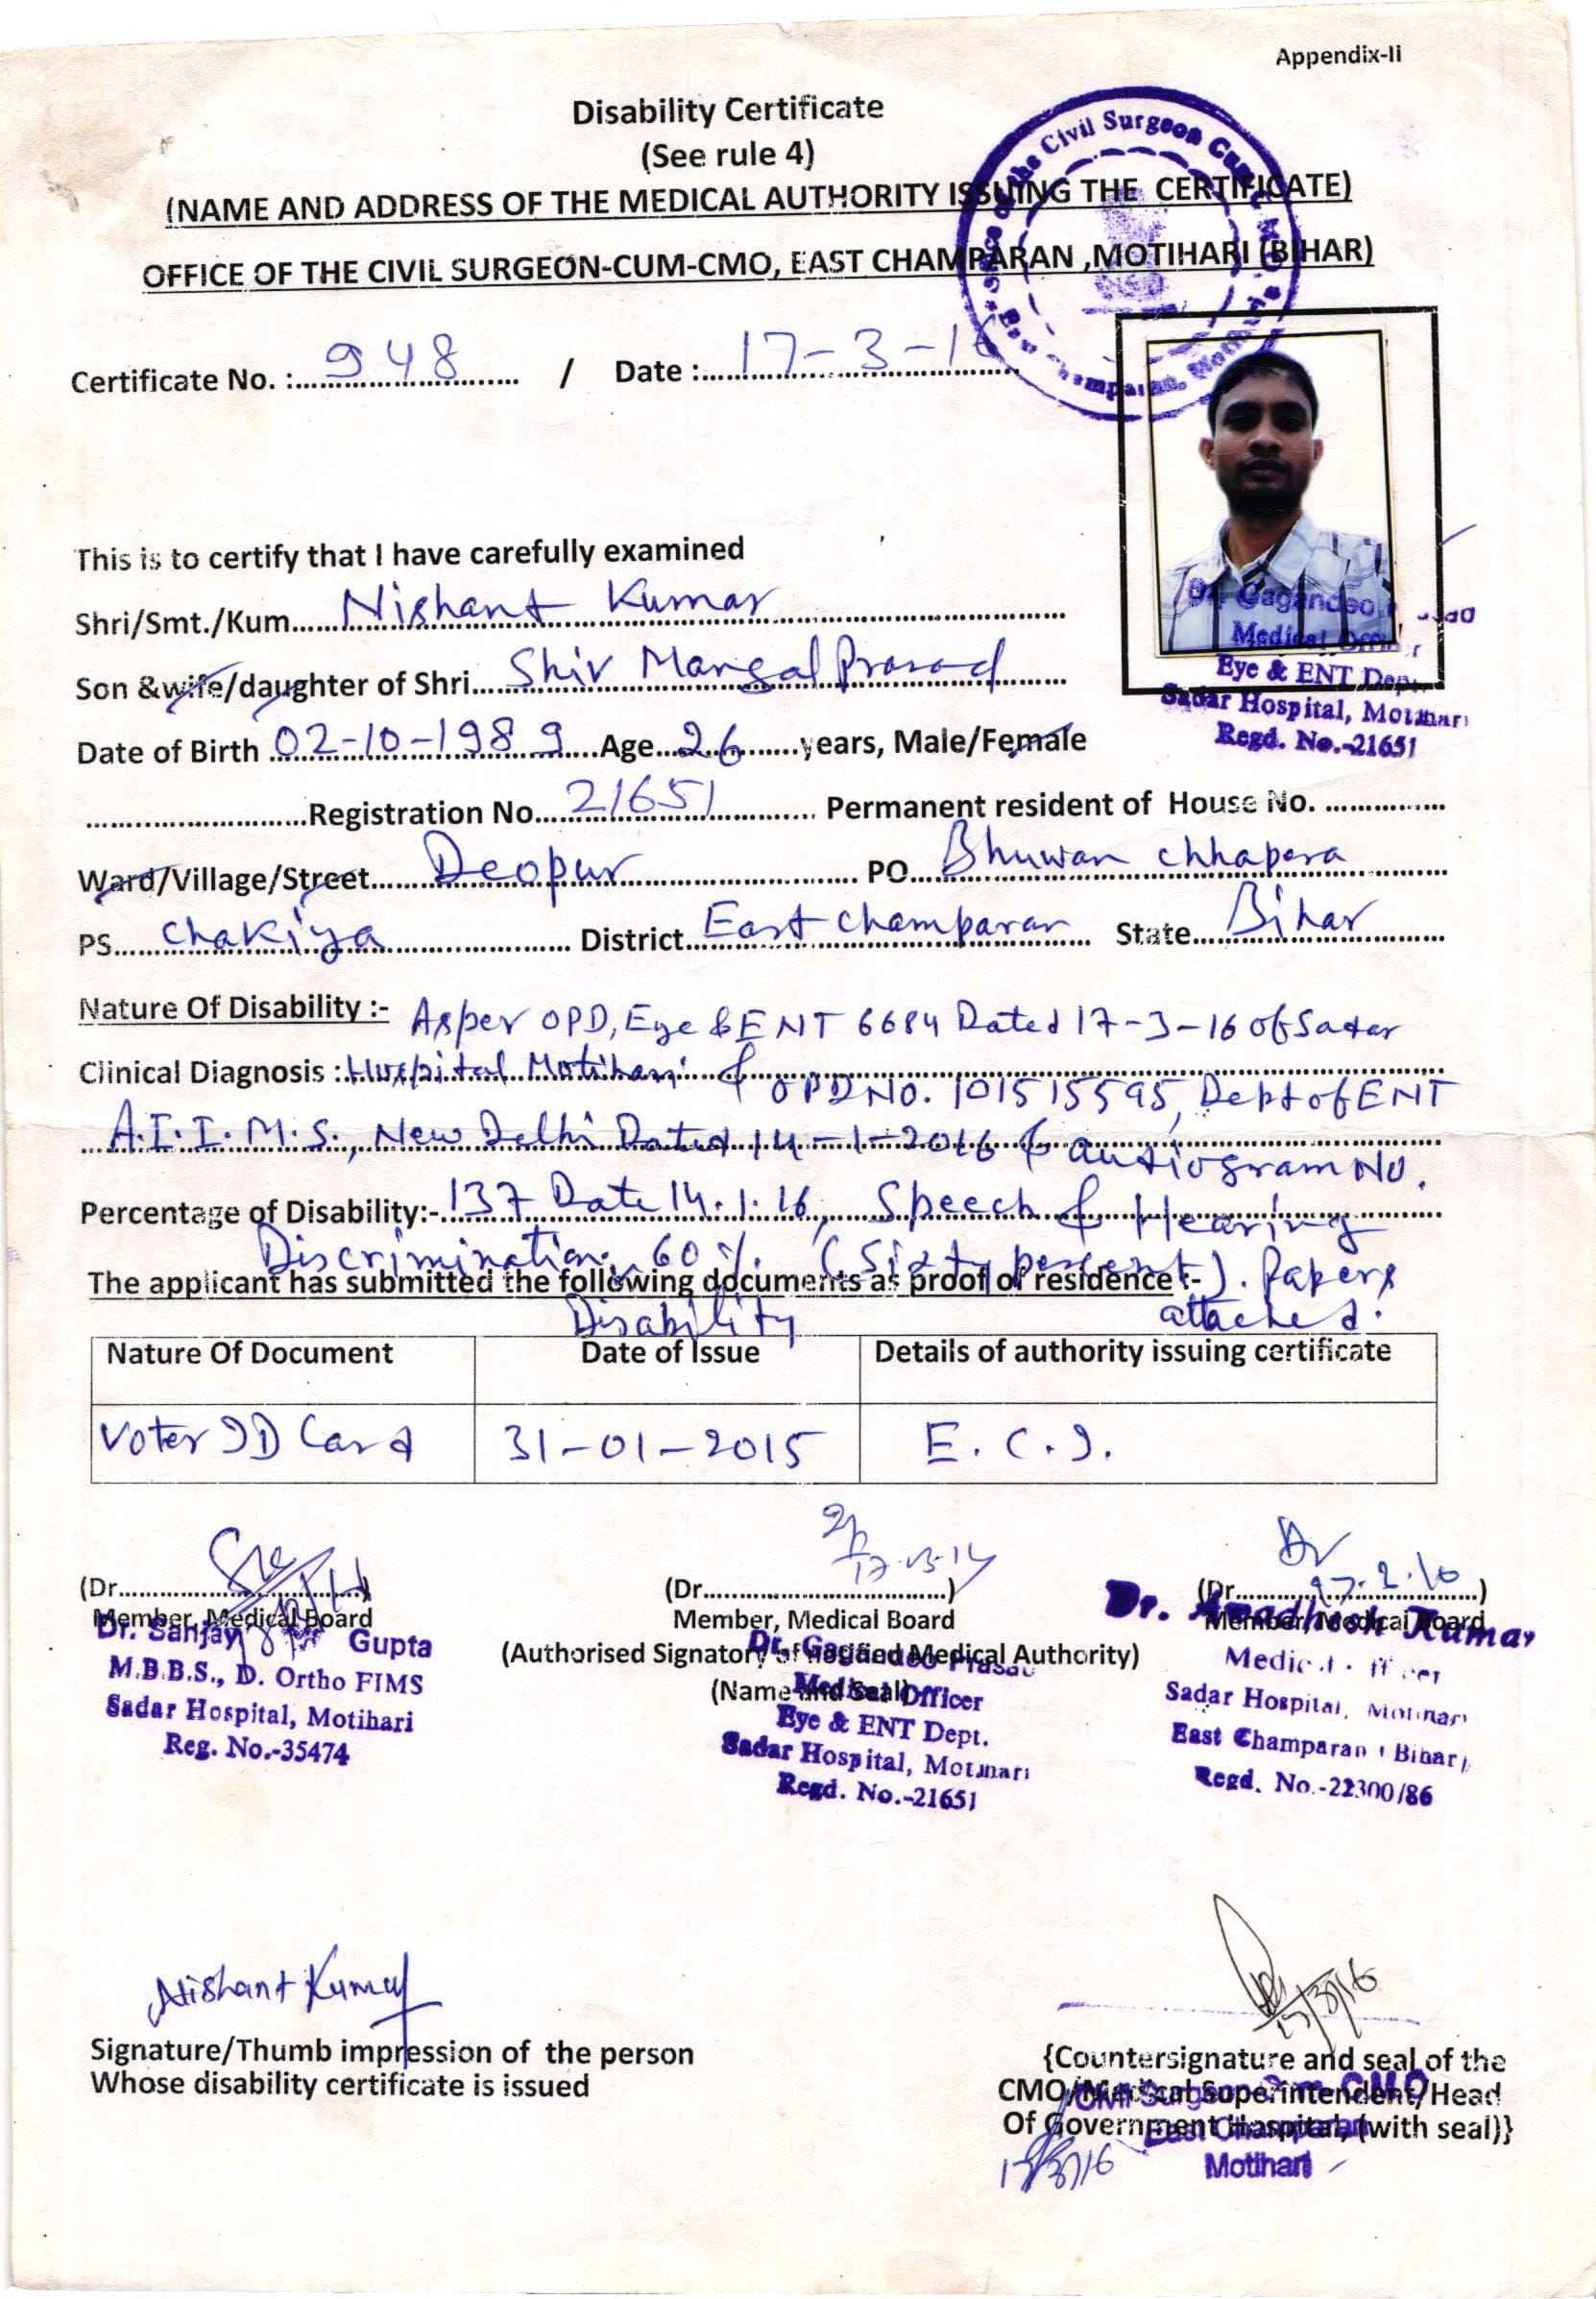 Appendix-Ii
Disability Certificate
(See rule 4)
(NAME AND ADDRESS OF THE MEDICAL AUTHORITY ISSUING THE CERTIFICATE)
OFFICE OF THE CIVIL SURGEON-CUM-CMO, EAST CHAMPARAN ,MOTIHARI (BIHAR)
Certificate No. : 948 / Date : 17-3-16
This is to certify that I have carefully examined
Shri/Smt./Kum. Nishant Kumar
Son &wife/daughter of Shri Shiv Mangal Prasad
Date of Birth 02-10-1989 Age 26 years, Male/Female
Registration No. 21651 Permanent resident of House No.
Ward/Village/Street Deopur PO Bhuwan chhapara
PS Chakiya District East champaran State Bihar
Nature Of Disability :- As per OPD, Eye & ENT 6684 Dated 17-3-16 of Sadar
Clinical Diagnosis : Hospital Motihari & OPD NO. 101515595, Dept of ENT
A.I.I.M.S., New Delhi Dated 14-1-2016 & audiogram No.
Percentage of Disability:- 137 Date 14.1.16, Speech & Hearing
Discrimination 60 % (Sixty percent). Papers
The applicant has submitted the following documents as proof of residence :-
Disability attached.
Nature Of Document Date of Issue Details of authority issuing certificate
Voter ID Card 31-01-2015 E.C.I.
Dr. Gagandeo
Medical Officer
Eye & ENT Dept.
Sadar Hospital, Motihari
Regd. No.-21651
(Dr. )
Member, Medical Board
Dr. Sanjay Gupta
M.B.B.S., D. Ortho FIMS
Sadar Hospital, Motihari
Reg. No.-35474
(Dr. )
Member, Medical Board
(Authorised Signatory of notified Medical Authority)
(Name and Seal)
Dr. Gagandeo Prasad
Medical Officer
Eye & ENT Dept.
Sadar Hospital, Motihari
Regd. No.-21651
(Dr. )
Member, Medical Board
Dr. Awadhesh Kumar
Medical Officer
Sadar Hospital, Motihari
East Champaran (Bihar)
Regd. No.-22300/86
Nishant Kumar
Signature/Thumb impression of the person
Whose disability certificate is issued
{Countersignature and seal of the
CMO/Medical Superintendent/Head
Of Government Haspital, (with seal)}
Civil Surgeon Cum C.M.O
East Champaran
Motihari